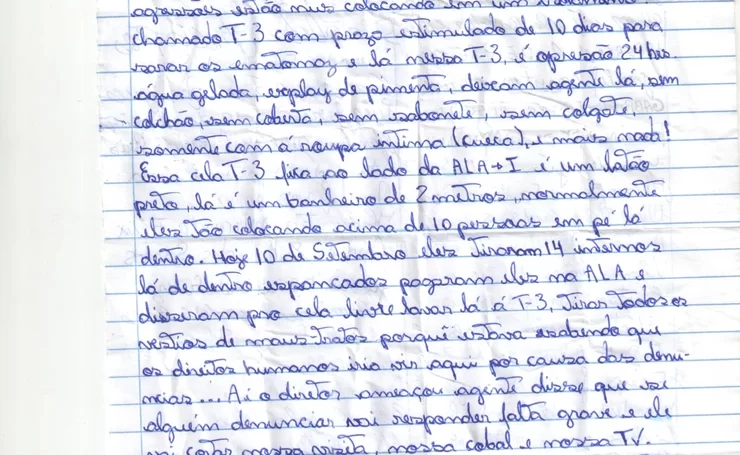 agressões estão nus colocando em um
chamado T-3 com prazo estimulado de 10 dias para
sarar os ematomaz e lá nessa T-3, é opressão 24 hrs.
água gelada, esplay de pimenta, deixam agente lá, sem
colchão, sem coberta, sem sabonete, sem colgate,
somente com a roupa intima (cueca), e mais nada!
Essa cela T-3 fica ao lado da ALA→I é um latão
preto, lá é um banheiro de 2 metros, normalmente
eles tão colocando acima de 10 pessoas em pé lá
dentro. Hoje 10 de Setembro eles tiraram 14 internos
lá de dentro espancados pagaram eles na ALA e
disseram pro cela livre lavar lá á T-3, tirar todos os
vestios de maus-tratos porquê estava sabendo que
os direitos humanos iria vir aqui por causa das denu-
ncias... Ai o diretor ameaçou agente disse que se
alguém denunciar vai responder falta grave e ele
vai cortar nossa visita, nossa cobal e nossa TV.